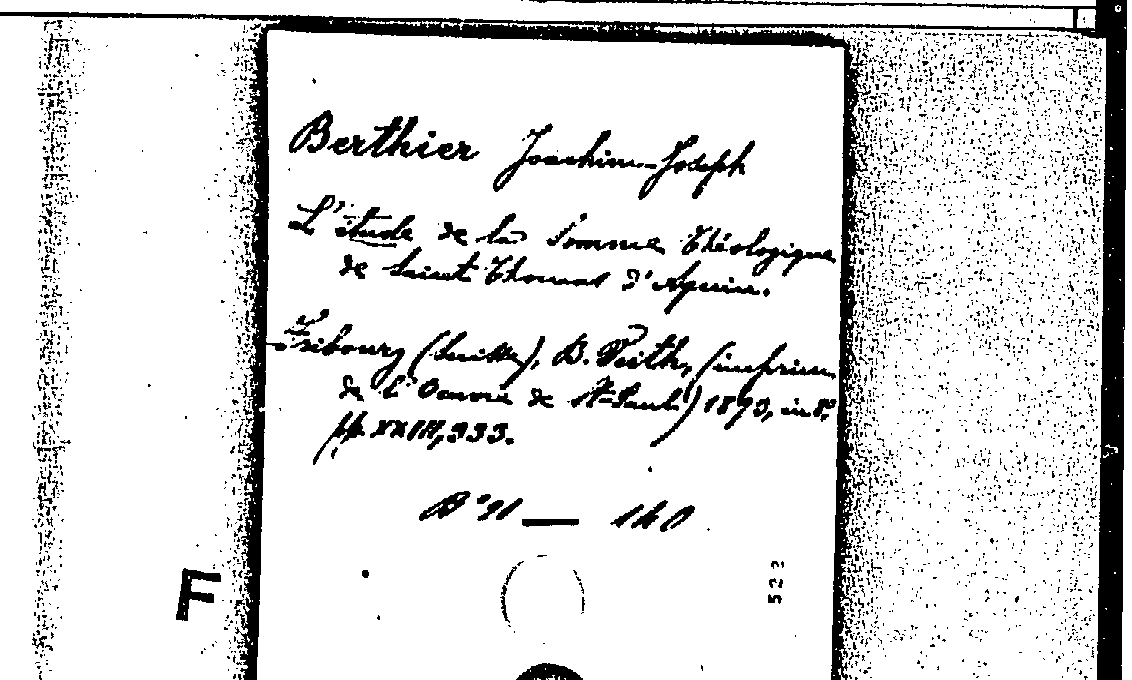 Berthier Joachim-Joseph
L'étude de la Somme Théologique
de Saint Thomas d'Aquin.
Fribourg (Suisse), B. Veith, (imprim.
de l'Oeuvre de St-Paul) 1893, in 8º,
pp. XXIII, 333.
B° 91 — 140
522
F